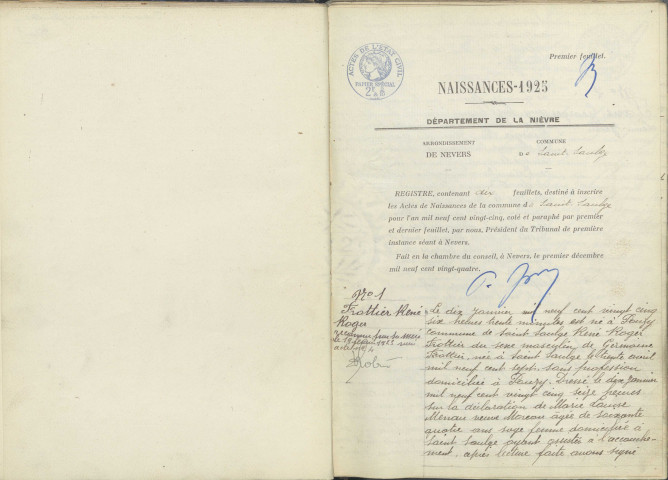 Premier feuillet.
ACTES DE L'ETAT CIVIL
PAPIER SPECIAL
NAISSANCES-1925
DÉPARTEMENT DE LA NIÈVRE
ARRONDISSEMENT
DE NEVERS
COMMUNE
DE Saint-Saulge
REGISTRE, contenant dix feuillets, destiné à inscrire
les Actes de Naissances de la commune de Saint-Saulge
pour l'an mil neuf cent vingt-cinq, coté et paraphé par premier
et dernier feuillet, par nous, Président du Tribunal de première
instance séant à Nevers.
Fait en la chambre du conseil, à Nevers, le premier décembre
mil neuf cent vingt-quatre.
No 1
Trottier René
Roger
Le dix janvier mil neuf cent vingt cinq
six heures trente minutes est né à
commune de Saint Saulge René Roger
Trottier du sexe masculin de Germaine
Trottier, née à Saint Saulge le trente avril
mil neuf cent sept, sans profession
domiciliée à Dressé le dix janvier
mil neuf cent vingt cinq seize heures
sur la déclaration de Marie Louise
veuve Moreau âgée de soixante
quatre ans sage femme domiciliée à
Saint Saulge ayant assisté à l'accouche-
ment, après lecture faite avons signé